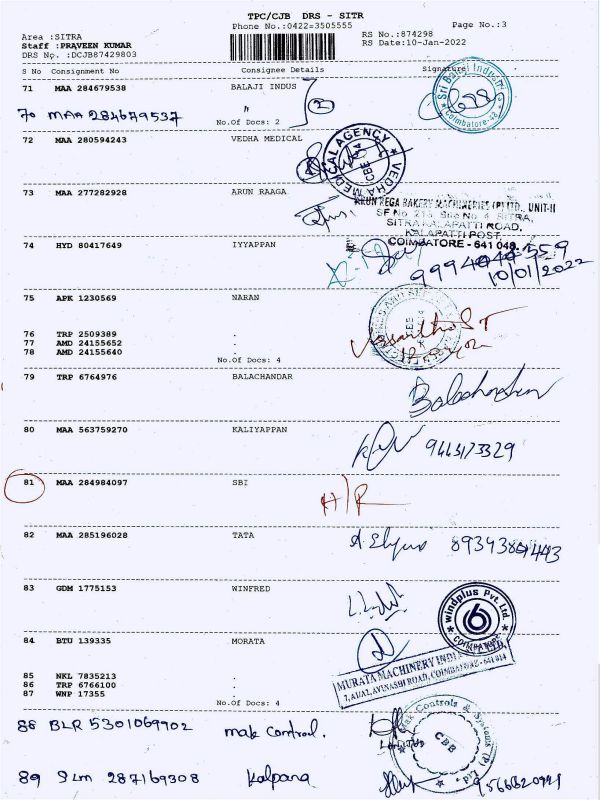 TPC/CJB DRS - SITR
Phone No.:0422=3505555 Page No.:3
Area :SITRA RS No.:874298
Staff :PRAVEEN KUMAR RS Date:10-Jan-2022
DRS No. :DCJB87429803
S No Consignment No Consignee Details Signature
71 MAA 284679538 BALAJI INDUS
70 MAA 284679537 " 2
No.Of Docs: 2
Sri Balaji Coimbatore-48
72 MAA 280594243 VEDHA MEDICAL
VEDHA MEDICAL AGENCY CBE
73 MAA 277282928 ARUN RAAGA
ARUN REGA BAKERY MACHINERIES (P) LTD., UNIT-II
SF No. 213, Site No 4, SITRA,
SITRA KALAPATTI ROAD,
KALAPATTI POST,
COIMBATORE - 641 048.
74 HYD 80417649 IYYAPPAN
10/01/2022
75 APK 1230569 NARAN
76 TRP 2509389 .
77 AMD 24155652 .
78 AMD 24155640 .
No.Of Docs: 4
79 TRP 6764976 BALACHANDAR
Balachandran
80 MAA 563759270 KALIYAPPAN
81 MAA 284984097 SBI
H/R
82 MAA 285196028 TATA
83 GDM 1775153 WINFRED
windplus Pvt. Ltd. COIMBATORE
84 BTU 139335 MORATA
MURATA MACHINERY INDIA LTD.
7, AVINASHI ROAD, COIMBATORE - 641 014
85 NKL 7835213 .
86 TRP 6766100 .
87 WNP 17355 .
No.Of Docs: 4
88 BLR 5301069902 mak Control.
Mak Controls & Systems (P) Ltd. CBB
89 SLM 287169308 Kalpana